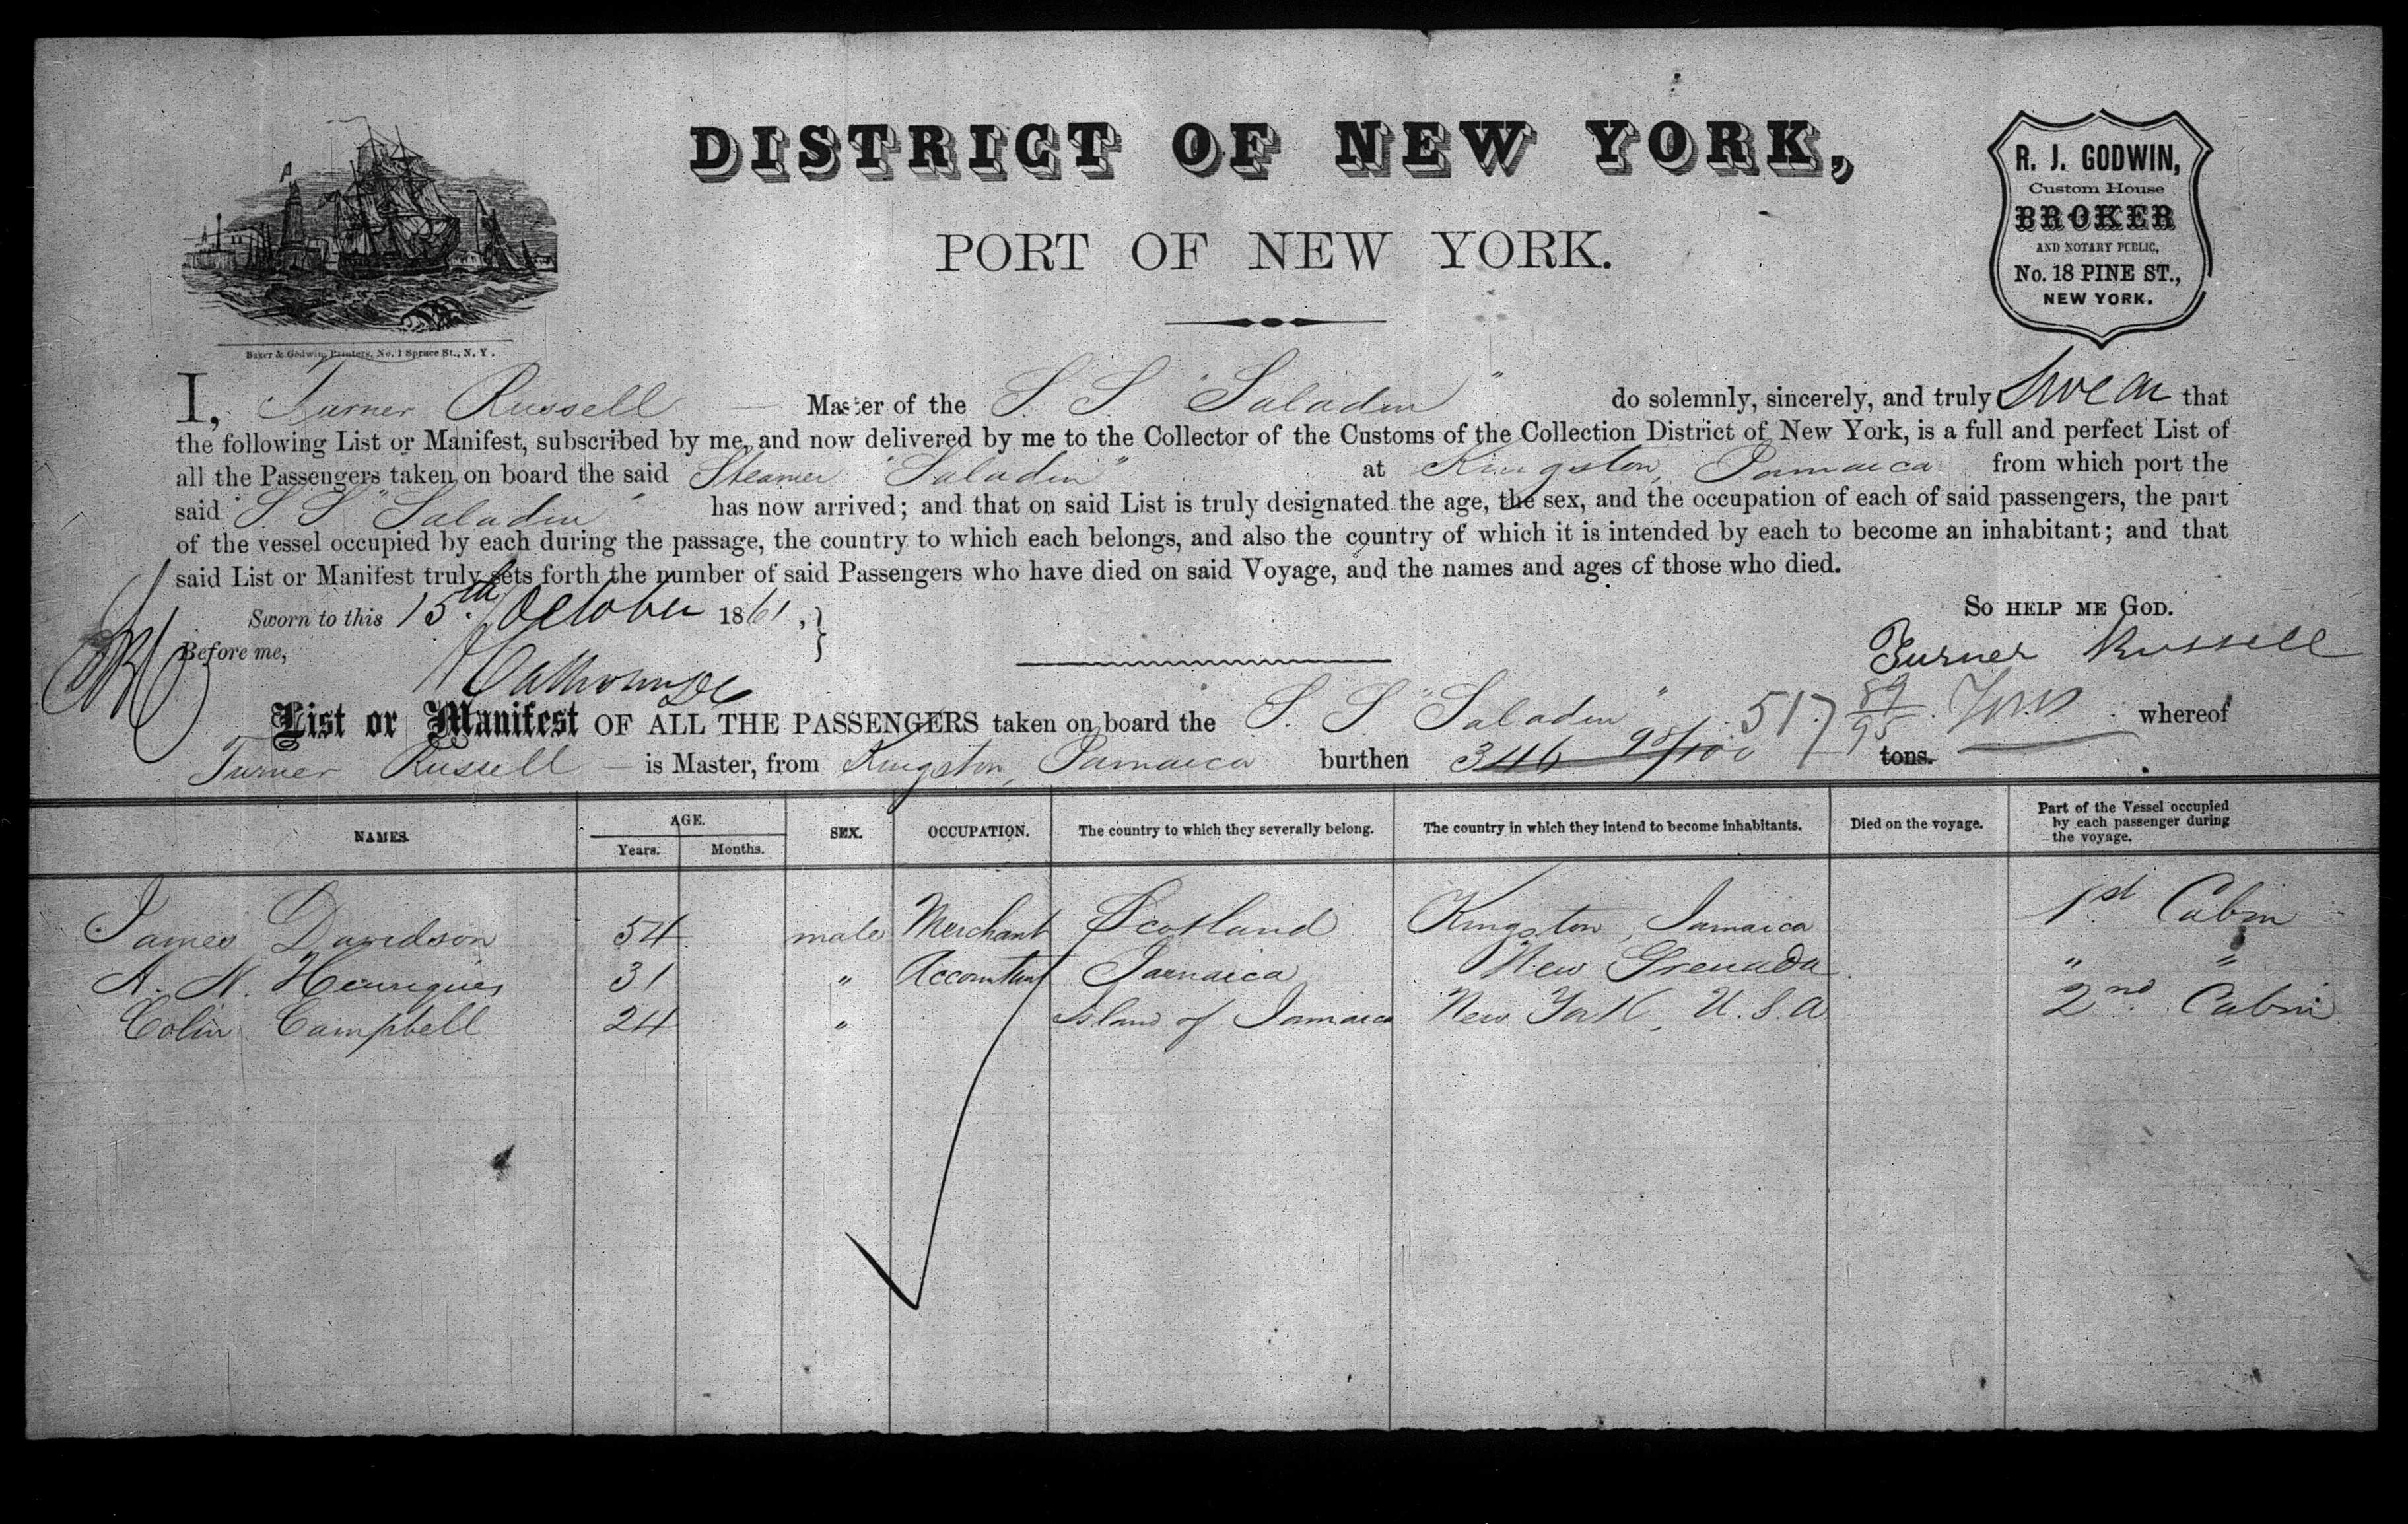 DISTRICT OF NEW YORK,
PORT OF NEW YORK.
R. J. GODWIN,
Custom House
BROKER
AND NOTARY PUBLIC,
No. 18 PINE ST.,
NEW YORK.
Baker & Godwin, Printers, No. 1 Spruce St., N. Y.
I, Turner Russell — Master of the S. S. "Saladin" do solemnly, sincerely, and truly swear that
the following List or Manifest, subscribed by me, and now delivered by me to the Collector of the Customs of the Collection District of New York, is a full and perfect List of
all the Passengers taken on board the said Steamer "Saladin" at Kingston, Jamaica from which port the
said S. S. "Saladin" has now arrived; and that on said List is truly designated the age, the sex, and the occupation of each of said passengers, the part
of the vessel occupied by each during the passage, the country to which each belongs, and also the country of which it is intended by each to become an inhabitant; and that
said List or Manifest truly sets forth the number of said Passengers who have died on said Voyage, and the names and ages of those who died.
Sworn to this 15th October 1861, }
SO HELP ME GOD.
Before me,
Turner Russell
List or Manifest OF ALL THE PASSENGERS taken on board the S. S. "Saladin" 517 89/95 Tons whereof
Turner Russell — is Master, from Kingston, Jamaica burthen 346 98/100 tons.
NAMES. AGE. SEX. OCCUPATION. The country to which they severally belong. The country in which they intend to become inhabitants. Died on the voyage. Part of the Vessel occupied by each passenger during the voyage.
Years. Months.
James Davidson 54 male Merchant Scotland Kingston, Jamaica 1st Cabin
A. N. Henriques 31 " Accountant Jamaica New Grenada " "
Colin Campbell 24 " Island of Jamaica New York, U.S.A 2nd Cabin